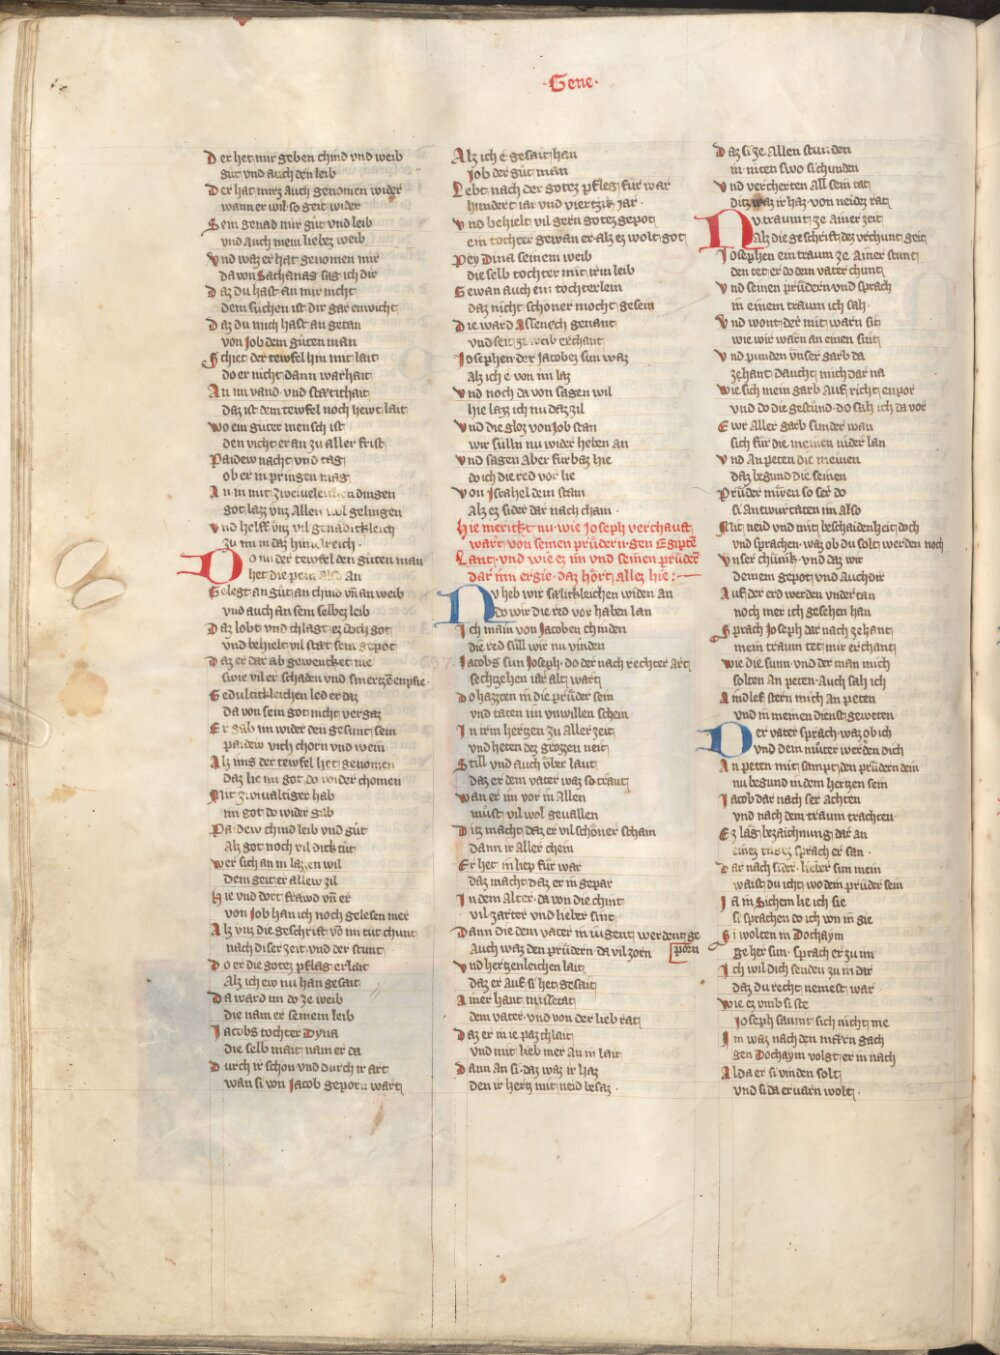 ·Gene·
Der het mir geben chind vnd weib
güt vnd auch den leib
Der hat mirz auch genomen wider
wann er wil so geit wider
Sein genad mir güt vnd leib
vnd auch mein liebez weib
Vnd waz er hat genomen mir
da von Sathanas sag ich dir
Daz du hast an mir nicht
dem süchen ist dir gar enwicht
Daz du mich hast an getan
von Job dem güten man
Schiet der tewfel hin mit lait
do er nicht dann warhait
An im vand vnd stætichait
daz ist dem tewfel noch hewt lait
Wo ein güter mensch ist
den vicht er an zu aller frist
Paidew nacht vnd tag
ob er in pringen mag
An in mit zweivelechen dingen
got laz vnz allen wol gelingen
Vnd helff vnz vil genædichleich
zu im in daz himelreich·
Do nu der tewfel den güten man
het die pein also an
Gelegt an güt an chind vñ an weib
vnd auch an sein selbez leib
Daz lobt vnd chlagt ez doch got
vnd behielt vil stæt sein gepot
Daz er dar ab gewencket nie
swie vil er schaden vnd smertzen enpfie·
Gedultichleichen led er daz
da von sein got nicht vergaz
Er gab im wider den gesunt sein
paidew vich chorn vnd wein
Alz imz der tewfel het genomen
daz lie im got do wider chomen
Mit zwivaltiger hab
im got do wider gab
Paidew chind leib vnd güt
Alz got noch vil dick tüt
Wer sich an in lazzen wil
dem geit er allew zil
Hie vnd dort frawd vñ er
von Job han ich noch gelesen mer
Alz vnz die geschrift võ im tüt chunt
nach diser zeit vnd der stunt
Do er die gotez pflag erlait
Alz ich ew nu han gesait
Da ward im do ze weib
die nam er seinem leib
Jacobs tochter Dyna
die selb mait nam er da
Durch ir schon vnd durch ir art
wan si von Jacob geporn wart
Alz ich e gesait han
Job der güt man
Lebt nach der gotez pfleg für war
hundert iar vnd viertzik iar·
Vnd behielt vil gern gotez gepot
ein tochter gewan er alz ez wolt got
Pey Dina seinem weib
die selb tochter mit irm leib
Gewan auch ein tochterlein
daz nicht schöner mocht gesein
Die ward Assenech genant
vnd seit ze weib erchant
Josephen der Jacobez sun waz
Alz ich e von im laz
Vnd noch da von sagen wil
hie laz ich nu daz zil
Vnd die gloz von Job stan
wir sülln nu wider heben an
Vnd sagen Aber fürbaz hie
do ich die red vor lie
Von Israhel dem stam
Alz ez sider dar nach cham·
Hie merckt nu wie Joseph verchauft
wart von seinen prüdern gen Egipte
Lant vnd wie ez im vnd seinen prüder
dar inn ergie· daz hört allez hie:
Nu heb wir sælichleichen widen an
do wir die red vor haben lan
Ich main von Jacoben chinden
die red süll wir nu vinden
Jacobs sun Joseph· do der nach rechter art
sechzehen iar alt wart
Do hazzten in die prüder sein
vnd taten im vnwillen schein
In irm hertzen zu aller zeit
vnd heten dez grozzen neit
Still vnd auch vber laut
daz er dem vater waz so traut
Wan er im vor in allen
müst vil wol geuallen
Ditz macht daz er vil schöner schain
dann ir aller chein
Er het in liep für war
daz macht daz er in gepar
In dem alter· da von die chint
vil zarter vnd lieber sint
Dann die dem vater in iugent werdent ge
porn
Auch waz den prüdern· da vil zorn
Vnd hertzenleichen lait
daz er auf si het gesait
Ainer hant missetat
dem vater· vnd von der lieb rat
Daz er in ie paz chlait
vnd mit lieb mer an in lait
Dann an si· daz waz ir haz
den ir hertz mit neid besaz·
Daz si ze allen stunden
in niten swo si chunden
Vnd vercherten all sein tat
ditz waz ir haz· von neidez rat
Nu traumt ze ainer zeit
Alz die geschrift dez vrchunt geit
Josephen ein traum ze ainer stunt
den tet er do dem vater chunt
Vnd seinen prüdern vnd sprach
in einem traum ich sah·
Vnd wont der mit warn sit
wie wir warn an einen snit
Vnd punden vnser garb da
zehant daucht mich dar na
Wie sich mein garb auf richt enpor
vnd do die gestünd· do sah ich da vor
Ewr aller garb sunder wan
sich für die meinen nider lan
Vnd an peten die meinen
daz begund die seinen
Prüder müen so ser do
si antwurtaten im also
Mit neid vnd mit beschaidenheit doch
vnd sprachen· waz ob du solt werden noch
Vnser chünik· vnd daz wir
deinem gepot vnd auch dir
Auf der erd werden vndertan
noch mer ich gesehen han
Sprach Joseph dar nach zehant
mein traum tet mir erchant
Wie die sunn· vnd der man mich
solten an peten· Auch sah ich
Aindlef stern mich an peten
vnd in meinen dienst geweten
Der vater sprach· waz ob ich
vnd dein müter werden dich
An peten mit sampt den prüdern dein
nu begund in dem hertzen sein
Jacob dar nach ser achten
vnd nach dem traum trachten·
Ez læg bezaichnung dar an
sprach er san·
Dar nach sider· lieber sun mein
waist du icht wo dein prüder sein
Ja in Sichem lie ich sie
si sprachen do ich von in gie
Si wolten in Dochaym
ge her sun· sprach er zu im
Ich wil dich senden zu in dar
daz du recht nemest war·
Wie ez vmb si ste
Joseph saumt sich nicht me
Im waz nach den mærn gach
gen Dochaym volgt er in nach
Alda er si vinden solt
vnd si da eruarn wolt·